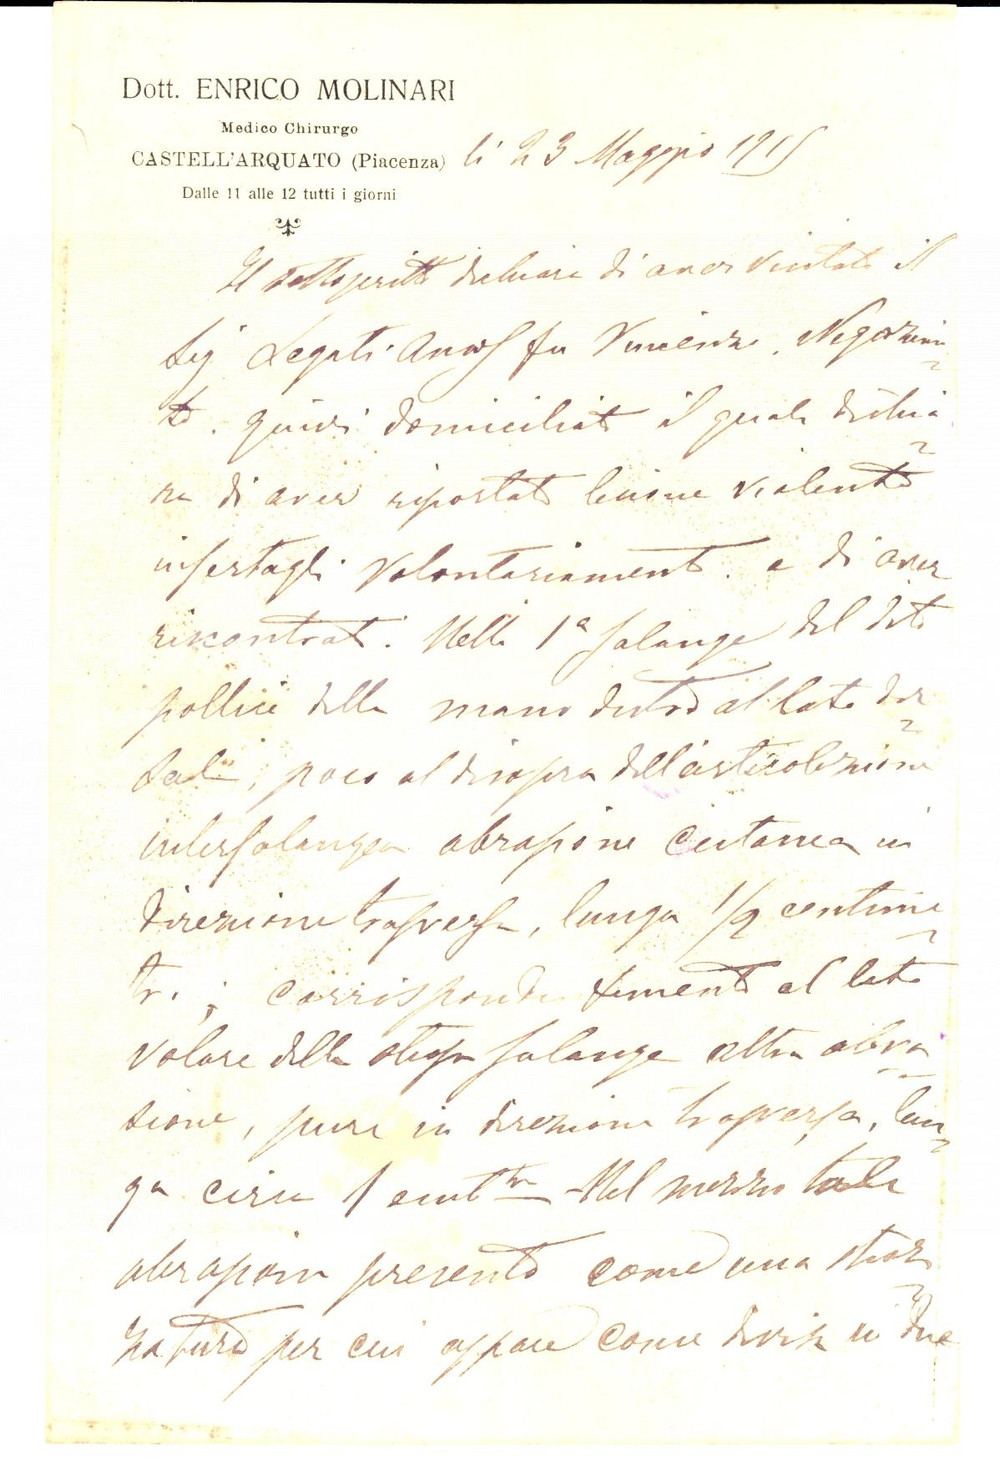 Dott. ENRICO MOLINARI
Medico Chirurgo
CASTELL'ARQUATO (Piacenza) li 23 Maggio 1915
Dalle 11 alle 12 tutti i giorni
Il sottoscritto dichiara di aver visitato il
Sig Legati fu Vincenzo, Negozian
te. quivi domiciliato il quale dichia
ra di aver riportato lesione violenta
infertagli volontariamente. e di aver
riscontrato. Nella 1a falange del dito
pollice della mano destra al lato dor
sale, poco al disopra dell'articolazione
interfalangea abrasione cutanea in
direzione trasversa, lunga 1/2 centime
tr. ; corrispondentemente al lato
volare della stessa falange altra abra
sione, pure in direzione trasversa, lun
ga circa 1 centtro - Nel mezzo tale
abrasione presenta come una stroz
zatura per cui appare come divisa in due